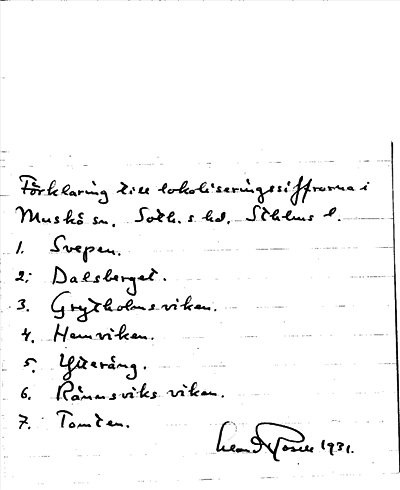 Förklaring till lokaliseringssiffrorna i
Muskö sn. Soth. s hd. Sthlms l.
1. Svepen.
2. Dalsberget.
3. Grytholmsviken.
4. Hemviken.
5. Ytteräng.
6. Rännsviks viken.
7. Tomten.
1931.